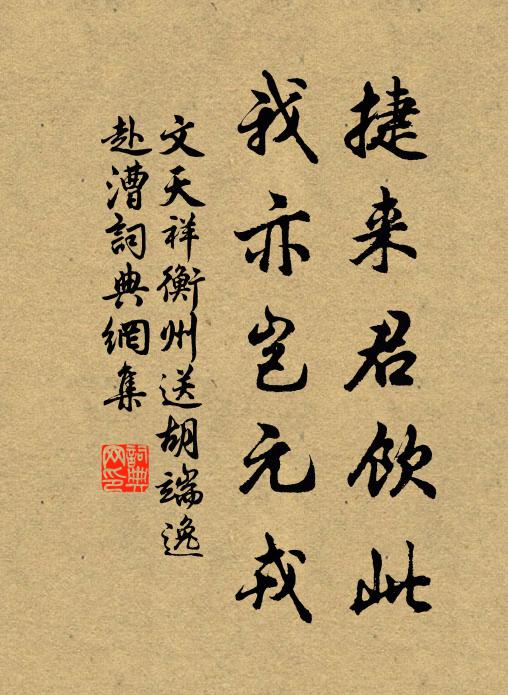 捷来君飲此
我亦岂元戎
文天祥衡州送胡端逸
赴漕詞典網集
詞典网印